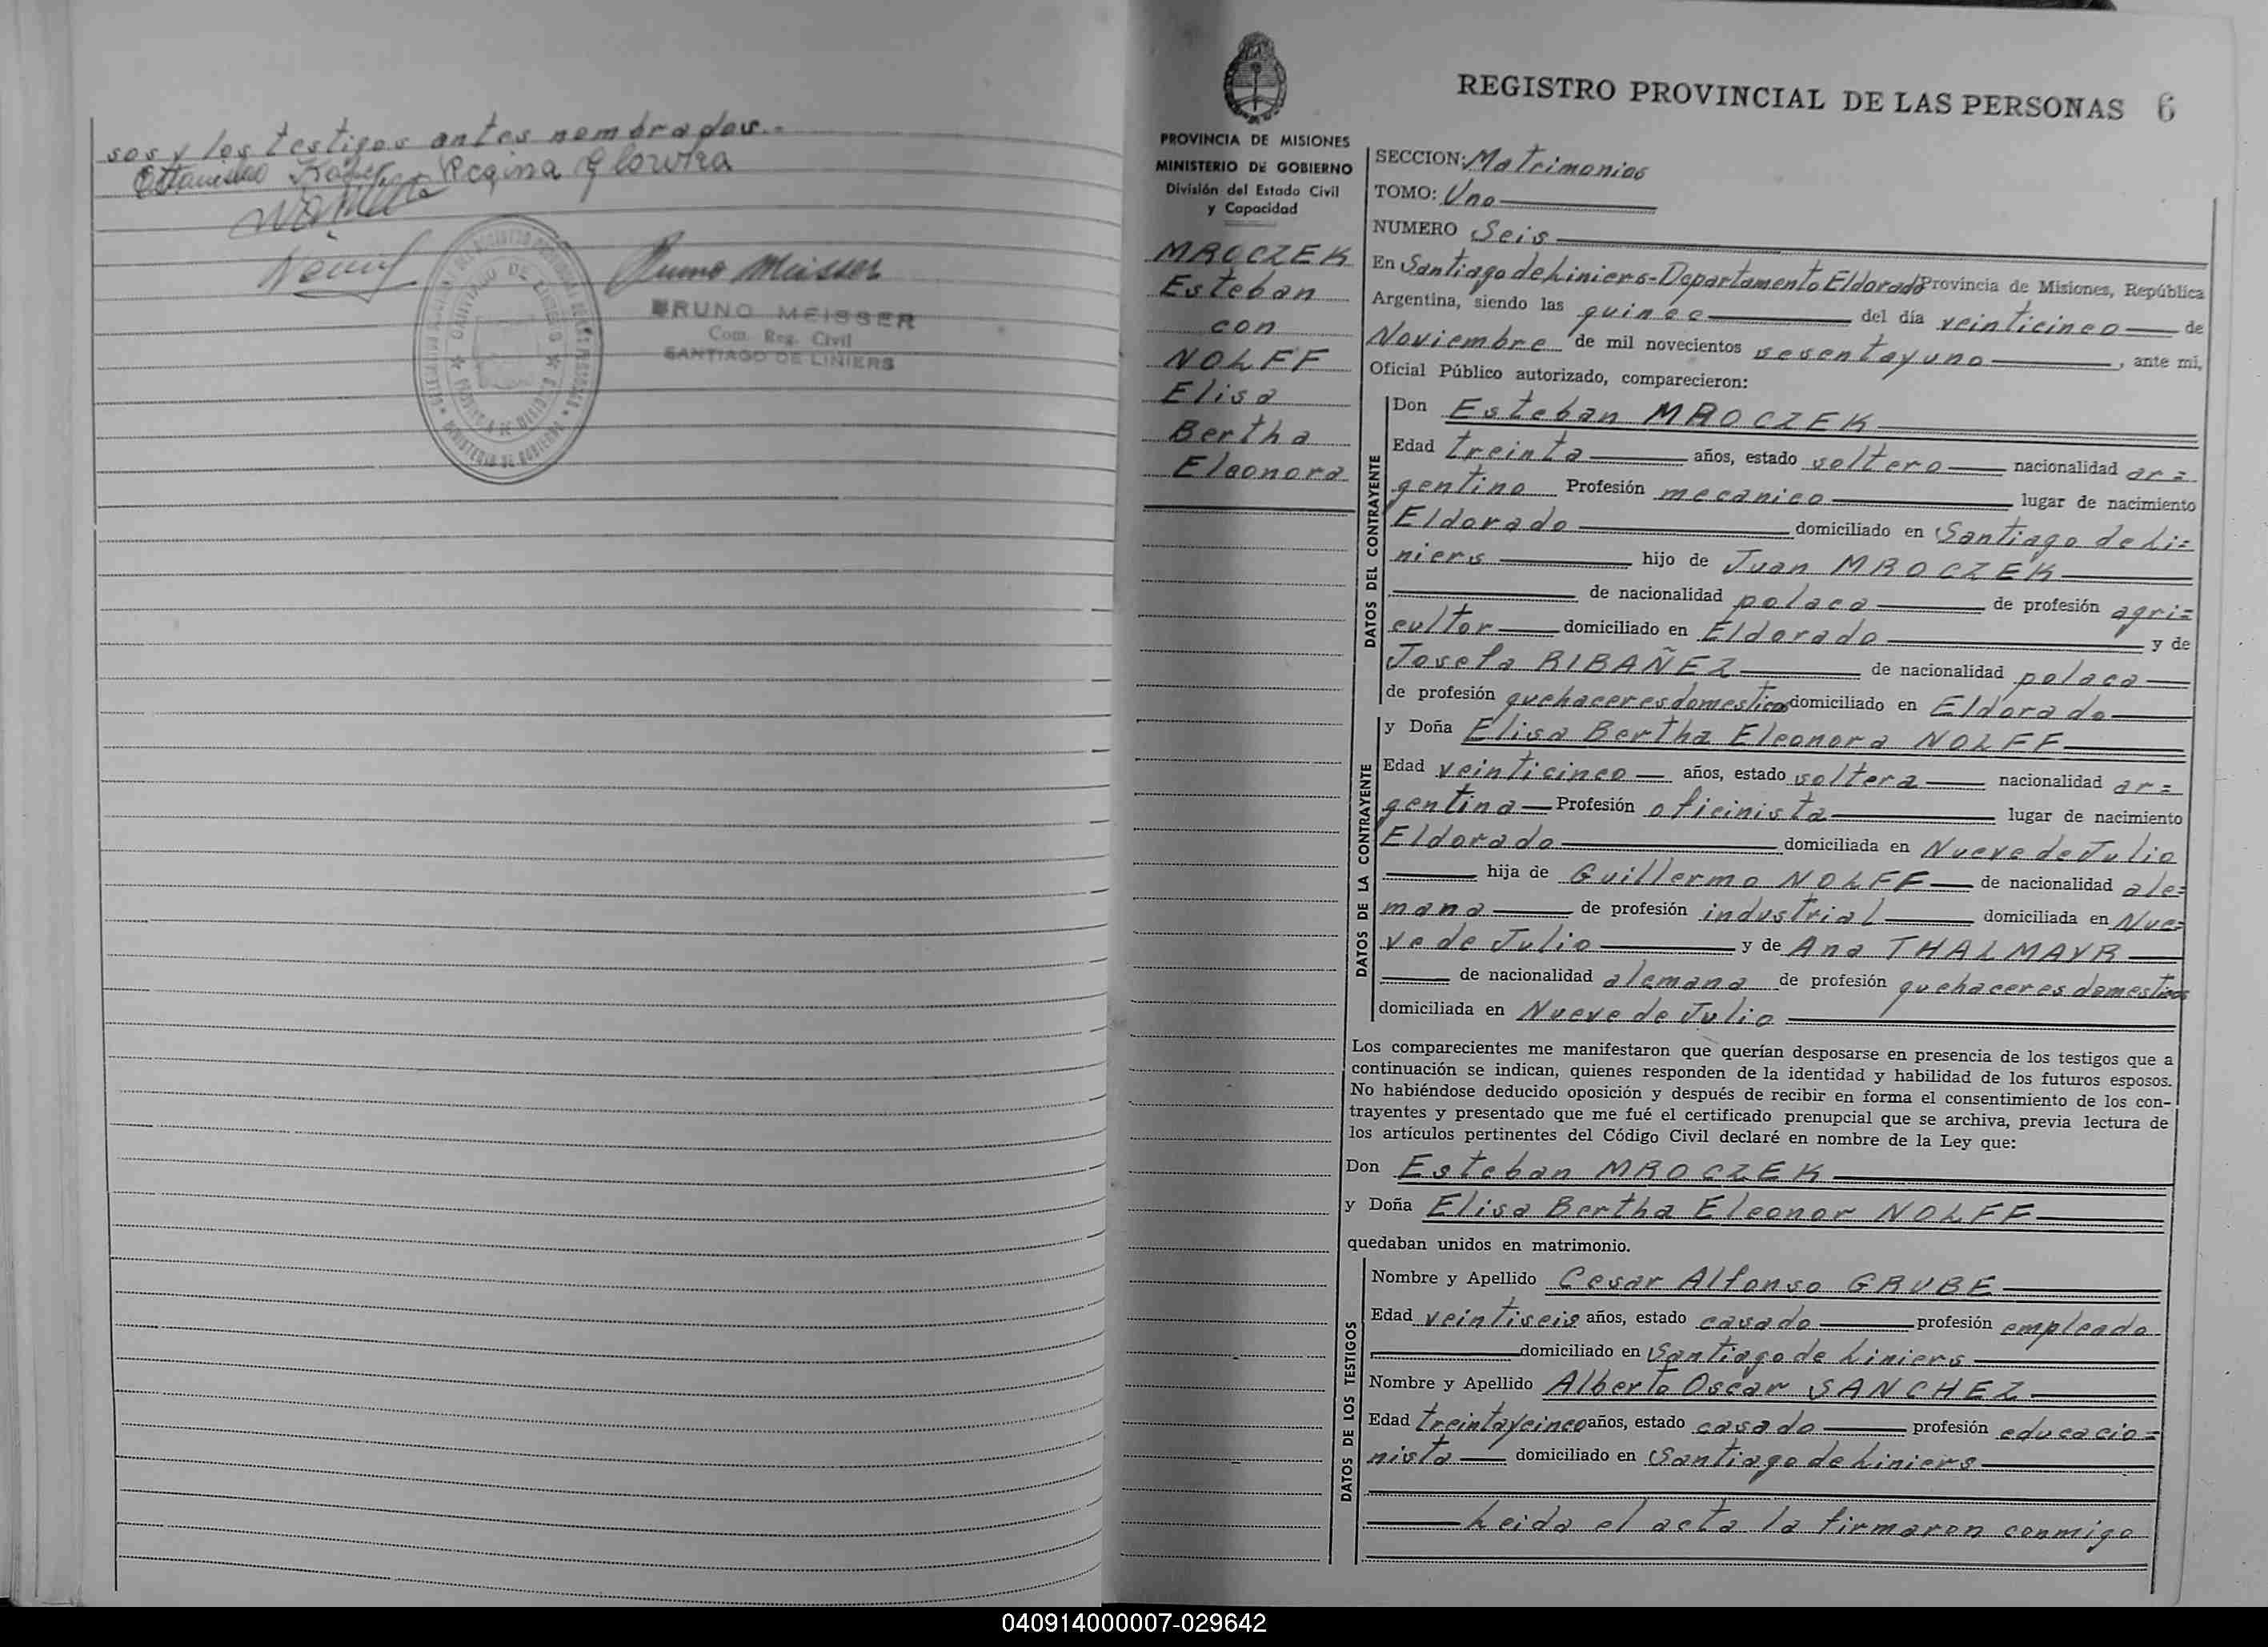 sos y los testigos antes nombrados.-
Regina Glowka
Bruno Meisser
BRUNO MEISSER
Com. Reg. Civil
SANTIAGO DE LINIERS
REGISTRO PROVINCIAL DE LAS PERSONAS 6
PROVINCIA DE MISIONES
MINISTERIO DE GOBIERNO
División del Estado Civil
y Capacidad
MROCZEK
Esteban
con
NOLFF
Elisa
Bertha
Eleonora
SECCION: Matrimonios
TOMO: Uno
NUMERO Seis
En Santiago de Liniers-Departamento Eldorado Provincia de Misiones, República
Argentina, siendo las quince del día veinticinco de
Noviembre de mil novecientos sesentayuno, ante mí,
Oficial Público autorizado, comparecieron:
DATOS DEL CONTRAYENTE
Don Esteban MROCZEK
Edad treinta años, estado soltero nacionalidad ar=
gentino Profesión mecanico lugar de nacimiento
Eldorado domiciliado en Santiago de Li=
niers hijo de Juan MROCZEK
de nacionalidad polaca de profesión agri=
cultor domiciliado en Eldorado y de
Josefa RIBAÑEZ de nacionalidad polaca
de profesión quehaceres domesticos domiciliado en Eldorado
DATOS DE LA CONTRAYENTE
y Doña Elisa Bertha Eleonora NOLFF
Edad veinticinco años, estado soltera nacionalidad ar=
gentina Profesión oficinista lugar de nacimiento
Eldorado domiciliada en Nueve de Julio
hija de Guillermo NOLFF de nacionalidad ale=
mana de profesión industrial domiciliada en Nue=
ve de Julio y de Ana THALMAYR
de nacionalidad alemana de profesión quehaceres domesticos
domiciliada en Nueve de Julio
Los comparecientes me manifestaron que querían desposarse en presencia de los testigos que a
continuación se indican, quienes responden de la identidad y habilidad de los futuros esposos.
No habiéndose deducido oposición y después de recibir en forma el consentimiento de los con-
trayentes y presentado que me fué el certificado prenupcial que se archiva, previa lectura de
los artículos pertinentes del Código Civil declaré en nombre de la Ley que:
Don Esteban MROCZEK
y Doña Elisa Bertha Eleonor NOLFF
quedaban unidos en matrimonio.
DATOS DE LOS TESTIGOS
Nombre y Apellido Cesar Alfonso GRUBE
Edad veintiseis años, estado casado profesión empleado
domiciliado en Santiago de Liniers
Nombre y Apellido Alberto Oscar SANCHEZ
Edad treintaycinco años, estado casado profesión educacio=
nista domiciliado en Santiago de Liniers
Leida el acta la firmaron conmigo
040914000007-029642